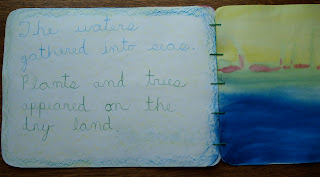 The waters
gathered into seas.
Plants and trees
appeared on the
dry land.